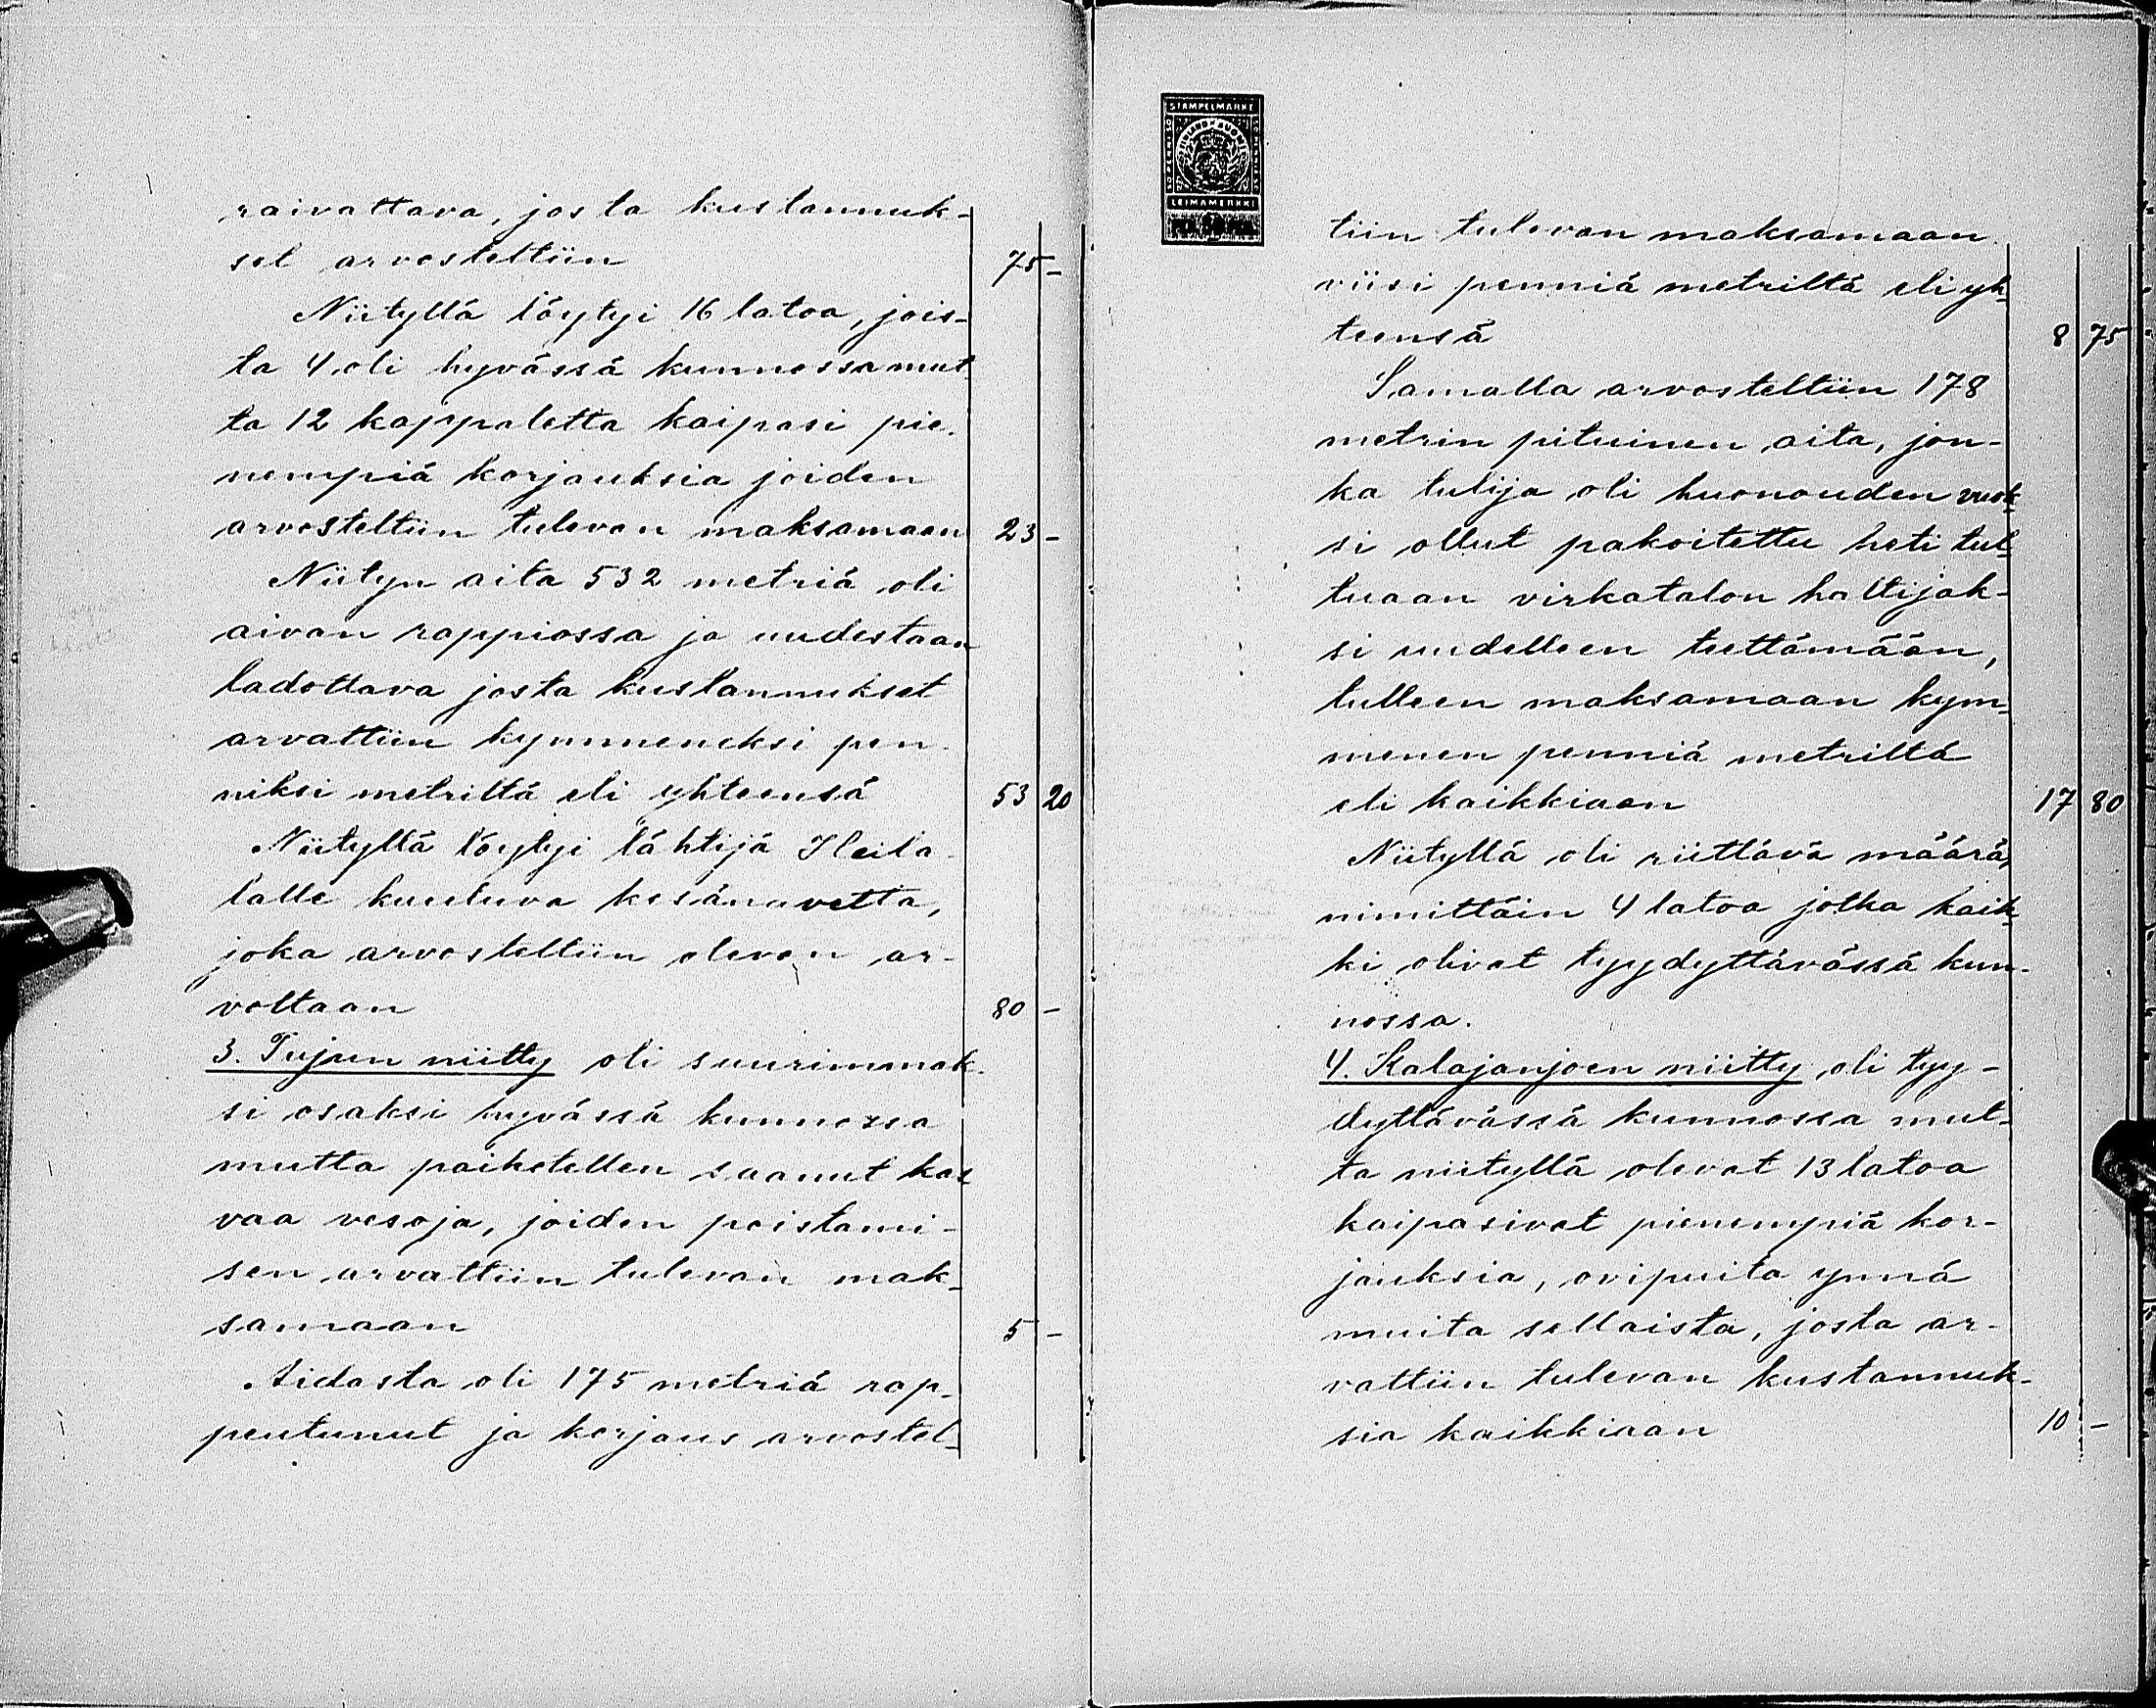 raivattava, josta kustannuk-
set arvosteltiin 75 -
Niityllä löytyi 16 latoa, jois-
ta 4 oli hyvässä kunnossa mut-
ta 12 kappaletta kaipasi pie-
nempiä korjauksia joiden
arvosteltiin tulevan maksamaan 23 -
Niityn aita 532 metriä oli
aivan rappiossa ja uudestaan
ladottava josta kustannukset
arvattiin kymmeneksi pen-
niksi metriltä eli yhteensä 53 20
Niityllä löytyi lähtijä Heila-
lalle kuuluva kesänavetta,
joka arvosteltiin olevan ar-
voltaan 80 -
3. Tujun niitty oli suurimmak-
si osaksi hyvässä kunnossa
mutta paikotellen saanut kas-
vaa vesoja, joiden poistami-
sen arvattiin tulevan mak-
samaan 5 -
Aidasta oli 175 metriä rap-
peutunut ja korjaus arvostel-
STÄMPELMÄRKE
LEIMAMERKKI
tiin tulevan maksamaan
viisi penniä metriltä eli yh-
teensä 8 75
Samalla arvosteltiin 178
metrin pituinen aita, jon-
ka tulija oli huonouden vuok-
si ollut pakoitettu heti tul-
tuaan virkatalon haltijak-
si uudelleen teettämään,
tulleen maksamaan kym-
menen penniä metriltä
eli kaikkiaan 17 80
Niityllä oli riittävä määrä,
nimittäin 4 latoa jotka kaik-
ki olivat tyydyttävässä kun-
nossa.
4. Kalajanjoen niitty oli tyy-
dyttävässä kunnossa mut-
ta niityllä olevat 13 latoa
kaipasivat pienempiä kor-
jauksia, ovipuita ynnä
muita sellaista, josta ar-
vattiin tulevan kustannuk-
sia kaikkiaan 10 -